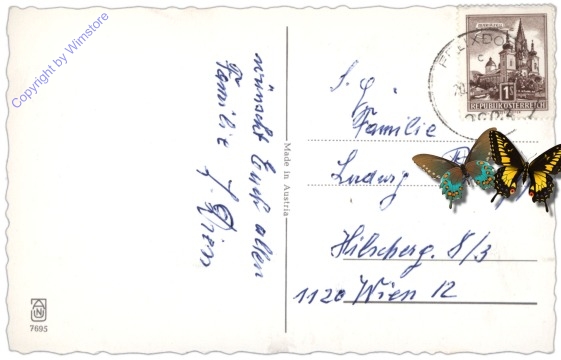 Copyright by Wimstore
wünscht Euch allen
Familie J.
Made in Austria
7695
1S
REPUBLIK ÖSTERREICH
S. g.
Familie
Ludwig
Hilscherg. 8/3
1120 Wien 12